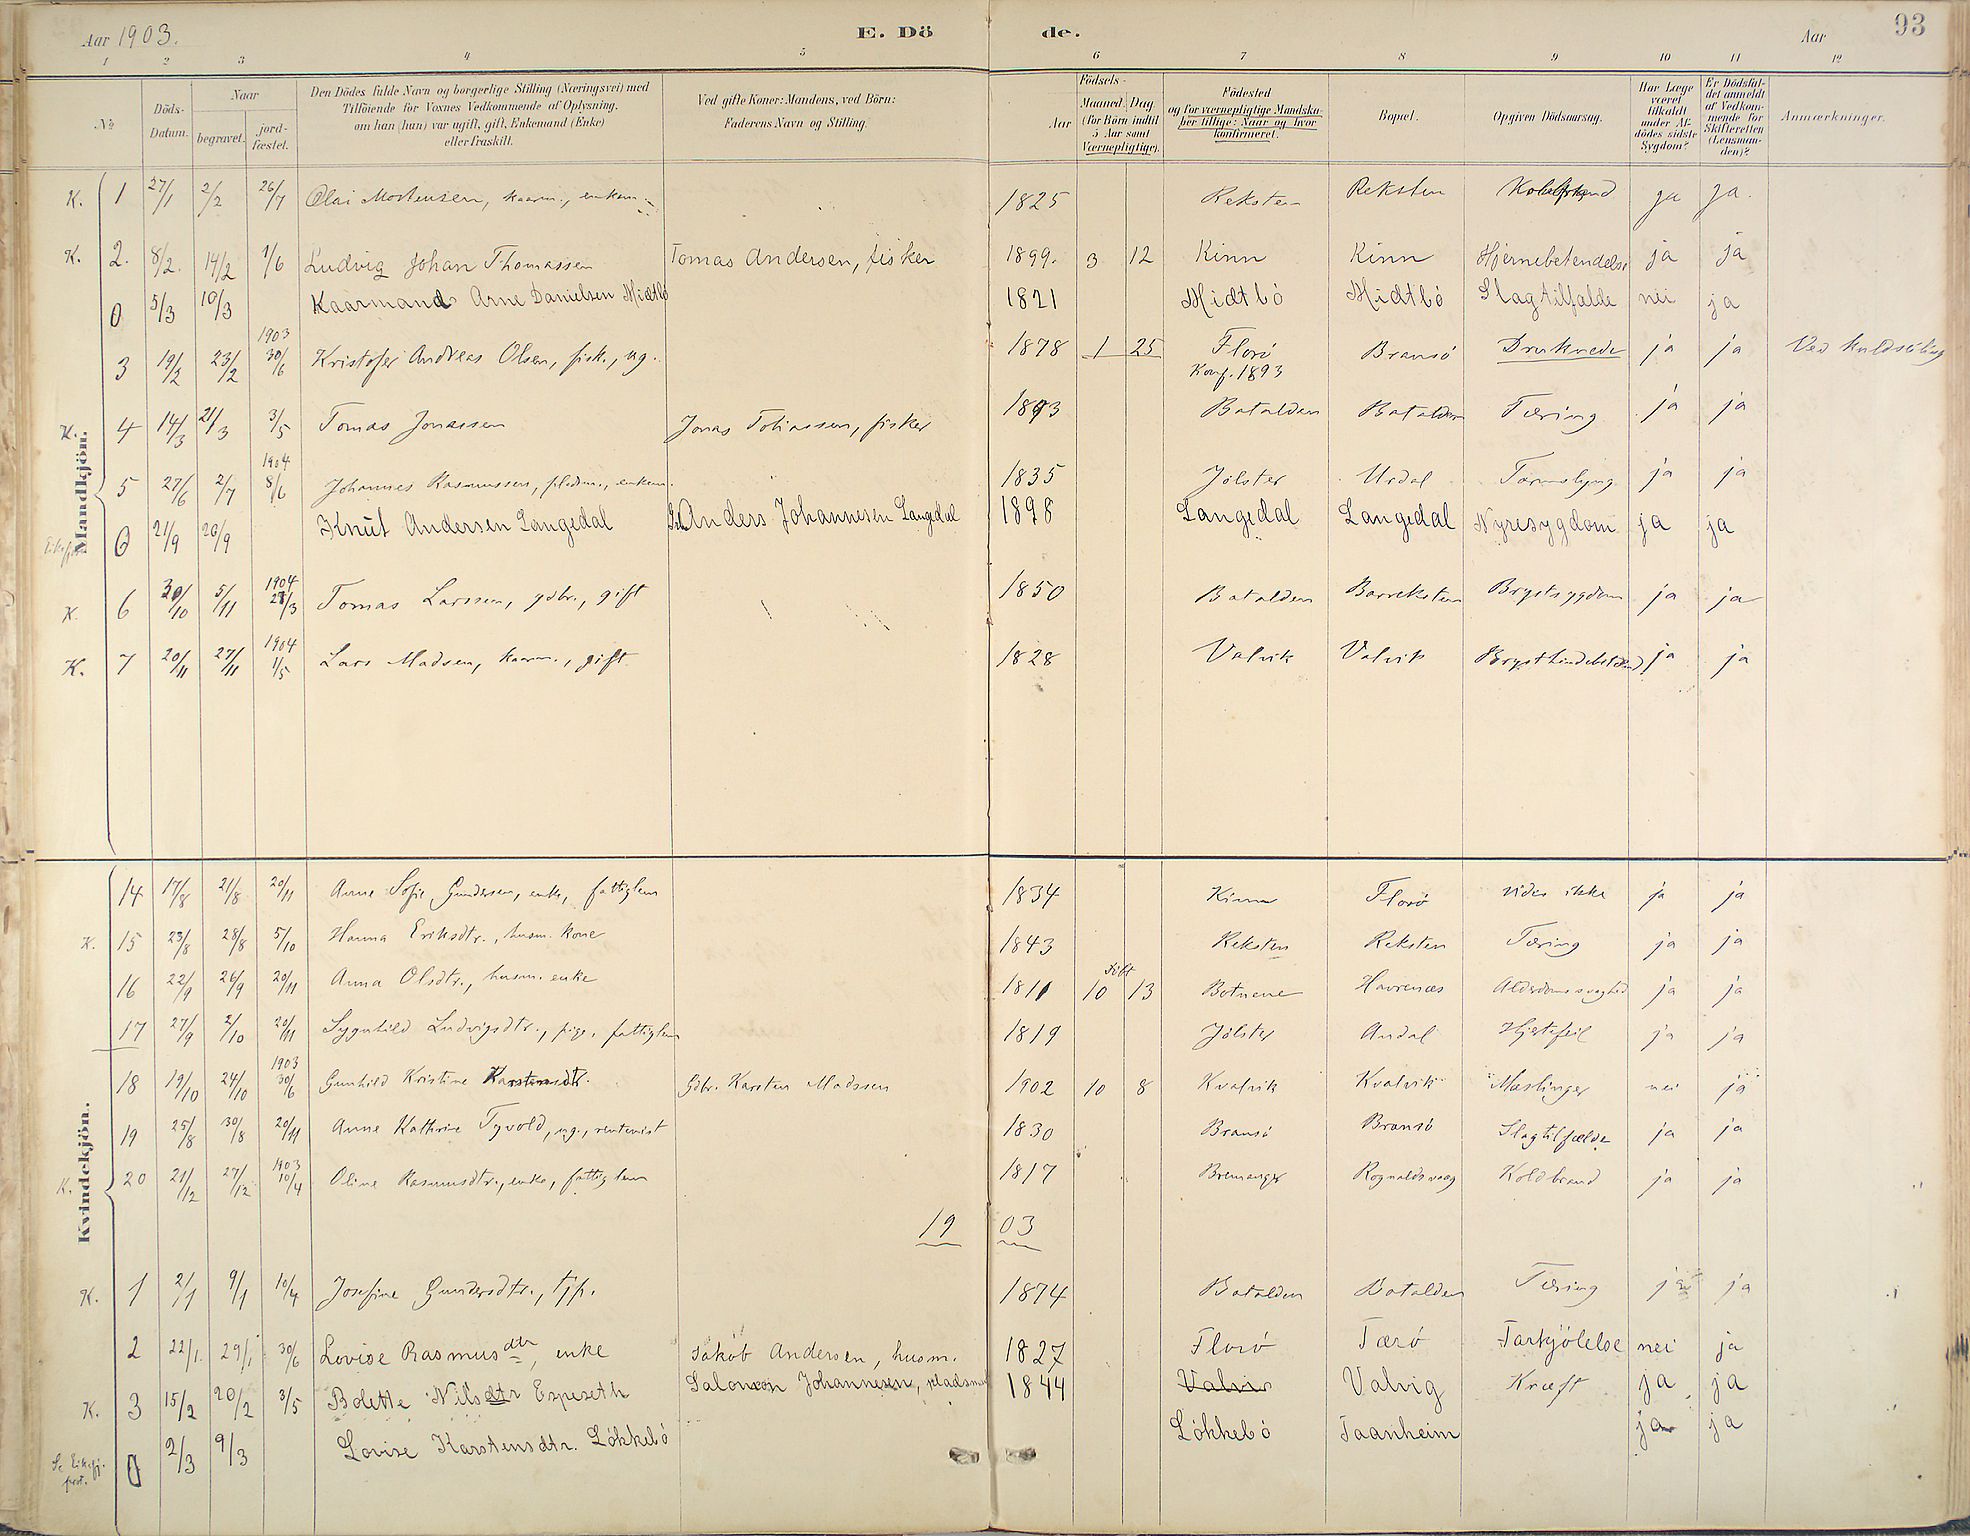 Aar 1903. E. Dö de. Aar 93
1 2 3 4 5 6 7 8 9 10 11 12
№
Döds-Datum.
Naar
begravet.
jord-fæstet.
Den Dödes fulde Navn og borgerlige Stilling (Næringsvei) med
Tilföiende for Voxnes Vedkommende af Oplysning,
om han (hun) var ugift, gift, Enkemand (Enke)
eller fraskilt.
Ved gifte Koner: Mandens, ved Börn:
Faderens Navn og Stilling.
Födsels-
Aar
Maaned. Dag.
(for Börn indtil
5 Aar samt
Værnepligtige).
Födested
og for værnepligtige Mandska-
ber tillige: Naar og hvor
konfirmeret.
Bopæl.
Opgiven Dödsaarsag.
Har Læge
været
tilkaldt
under Af-
dödes sidste
Sygdom?
Er Dödsfal-
det anmeldt
af Vedkom-
mende for
Skifteretten
(Lensman-
den)?
Anmærkninger.
Mandkjön.
K. 1 27/1 2/2 26/7 Olai Mortensen, kaarm., enkem. 1825 Reksten Reksten ja ja.
K. 2. 8/2. 14/2 1/6 Ludvig Johan Thomassen Tomas Andersen, fisker 1899. 3 12 Kinn Kinn Hjernebetendelse ja ja
0 5/3 10/3 Kaarmand Arne Danielsen Midtbö 1821 Midtbö Midtbö Slagtilfælde nei ja
3 19/2 23/2 1903 30/6 Kristofer Andreas Olsen, fisk., ug. 1878 1 25 Florö Konf. 1893 Bransö Druknede ja ja Ved kuldseiling
K. 4 14/3 21/3 3/5 Tomas Jonassen Jonas Tobiassen, fisker 1893 Batalden Batalden Tæring ja ja
5 27/6 2/7 1904 8/6 Johannes Rasmussen, pladsm., enkem. 1835 Jölster Urdal Tarmslyng ja ja
0 21/9 26/9 Knut Andersen Langedal Anders Johannesen Langedal 1898 Langedal Langedal Nyresygdom ja ja
K. 6 30/10 5/11 1904 27/3 Tomas Larssen, gdbr., gift 1850 Batalden Barreksten Brystsygdom ja ja
K. 7 20/11 27/11 1904 1/5 Lars Madsen, kaarm., gift 1828 Valvik Valvik ja ja
Kvindekjön.
14 17/8 21/8 20/11 Anne Sofie Gundersen, enke, fattiglem 1834 Kinn Florö vides ikke ja ja
K. 15 23/8 28/8 5/10 Hanna Eriksdtr., husm. kone 1843 Reksten Reksten Tæring ja ja
16 22/9 26/9 20/11 Anna Olsdtr., husm. enke 1811 döbt 10 13 Botnene Havrenæs Alderdomssvaghed ja ja
17 27/9 2/10 20/11 Sygnhild Ludvigsdtr., pige, fattiglem 1819 Jölster Andal Hjertefeil ja ja
18 19/10 24/10 1903 30/6 Gunhild Kristine Karstensdtr. Gdbr. Karsten Madssen 1902 10 8 Kvalvik Kvalvik Mæslinger nei ja
19 25/8 30/8 20/11 Anne Kathrine Tyvold, ug., rentenist 1830 Bransö Bransö Slagtilfælde ja ja
K. 20 21/12 27/12 1903 10/4 Oline Rasmusdtr., enke, fattiglem 1817 Bremanger Rognaldsvaag Koldbrand ja ja
19 03
K. 1 2/1 9/1 10/4 Josefine Gundersdtr., tjp. 1874 Batalden Batalden Tæring ja ja
2 22/1. 29/1 30/6 Lovise Rasmusdtr, enke Jakob Andersen, husm. 1827 Florö Tærö Forkjölelse nei ja
K. 3 15/2 20/2 3/5 Bolette Nilsdtr Espeseth Salomon Johannesen, pladsm 1844 Valvig Kræft ja ja
Se Eikefj. prot. 0 2/3 9/3 Lovise Karstensdtr. Lökkebö Lökkebö Taanheim ja ja